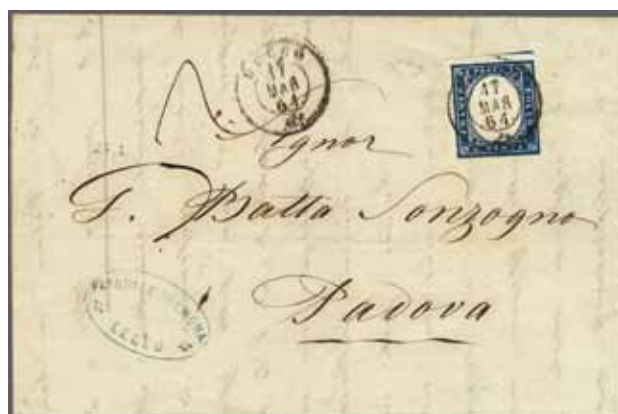 LECCO
17
MAR
64
17
MAR
64
Signor
G. Batta Sonzogno
Padova
LECCO